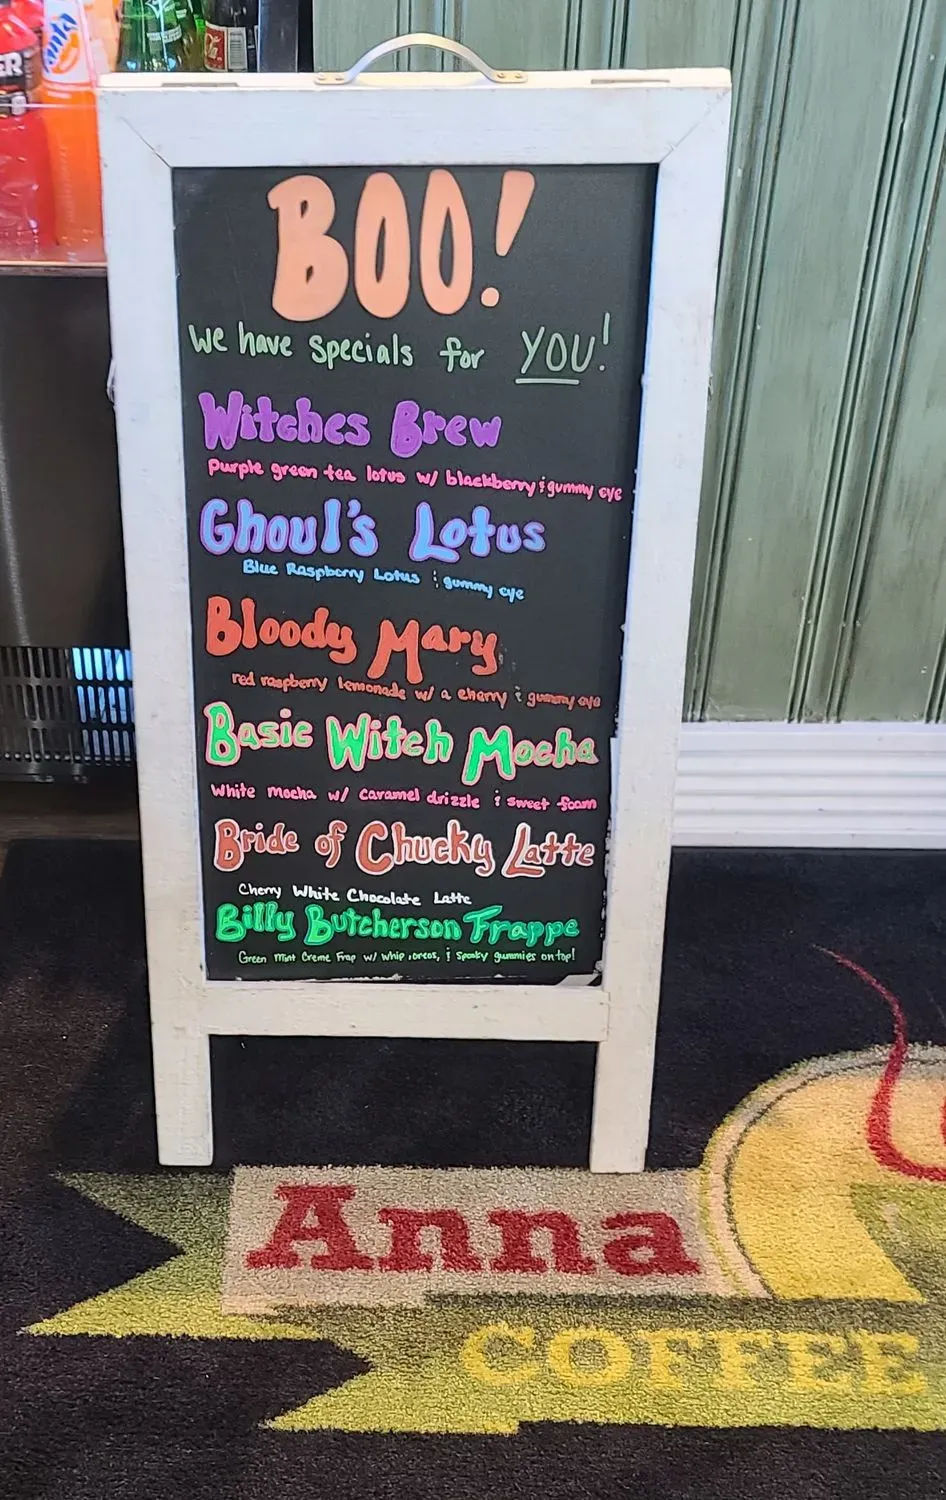 BOO!
We have specials for YOU!
Witches Brew
purple green tea lotus w/ blackberry & gummy eye
Ghoul's Lotus
Blue Raspberry Lotus & gummy eye
Bloody Mary
red raspberry lemonade w/ a cherry & gummy eye
Basic Witch Mocha
white mocha w/ caramel drizzle & sweet foam
Bride of Chucky Latte
Cherry White Chocolate Latte
Billy Butcherson Frappe
Green Mint Creme Frap w/ whip, oreos, & spooky gummies on top!
Anna
COFFEE